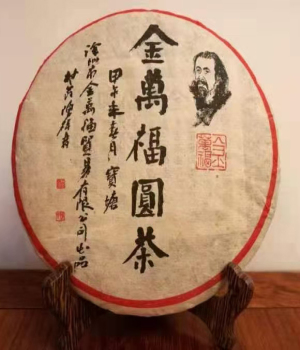 金萬福圓茶
甲午年春月寶塘
滄州市金萬福貿易有限公司出品